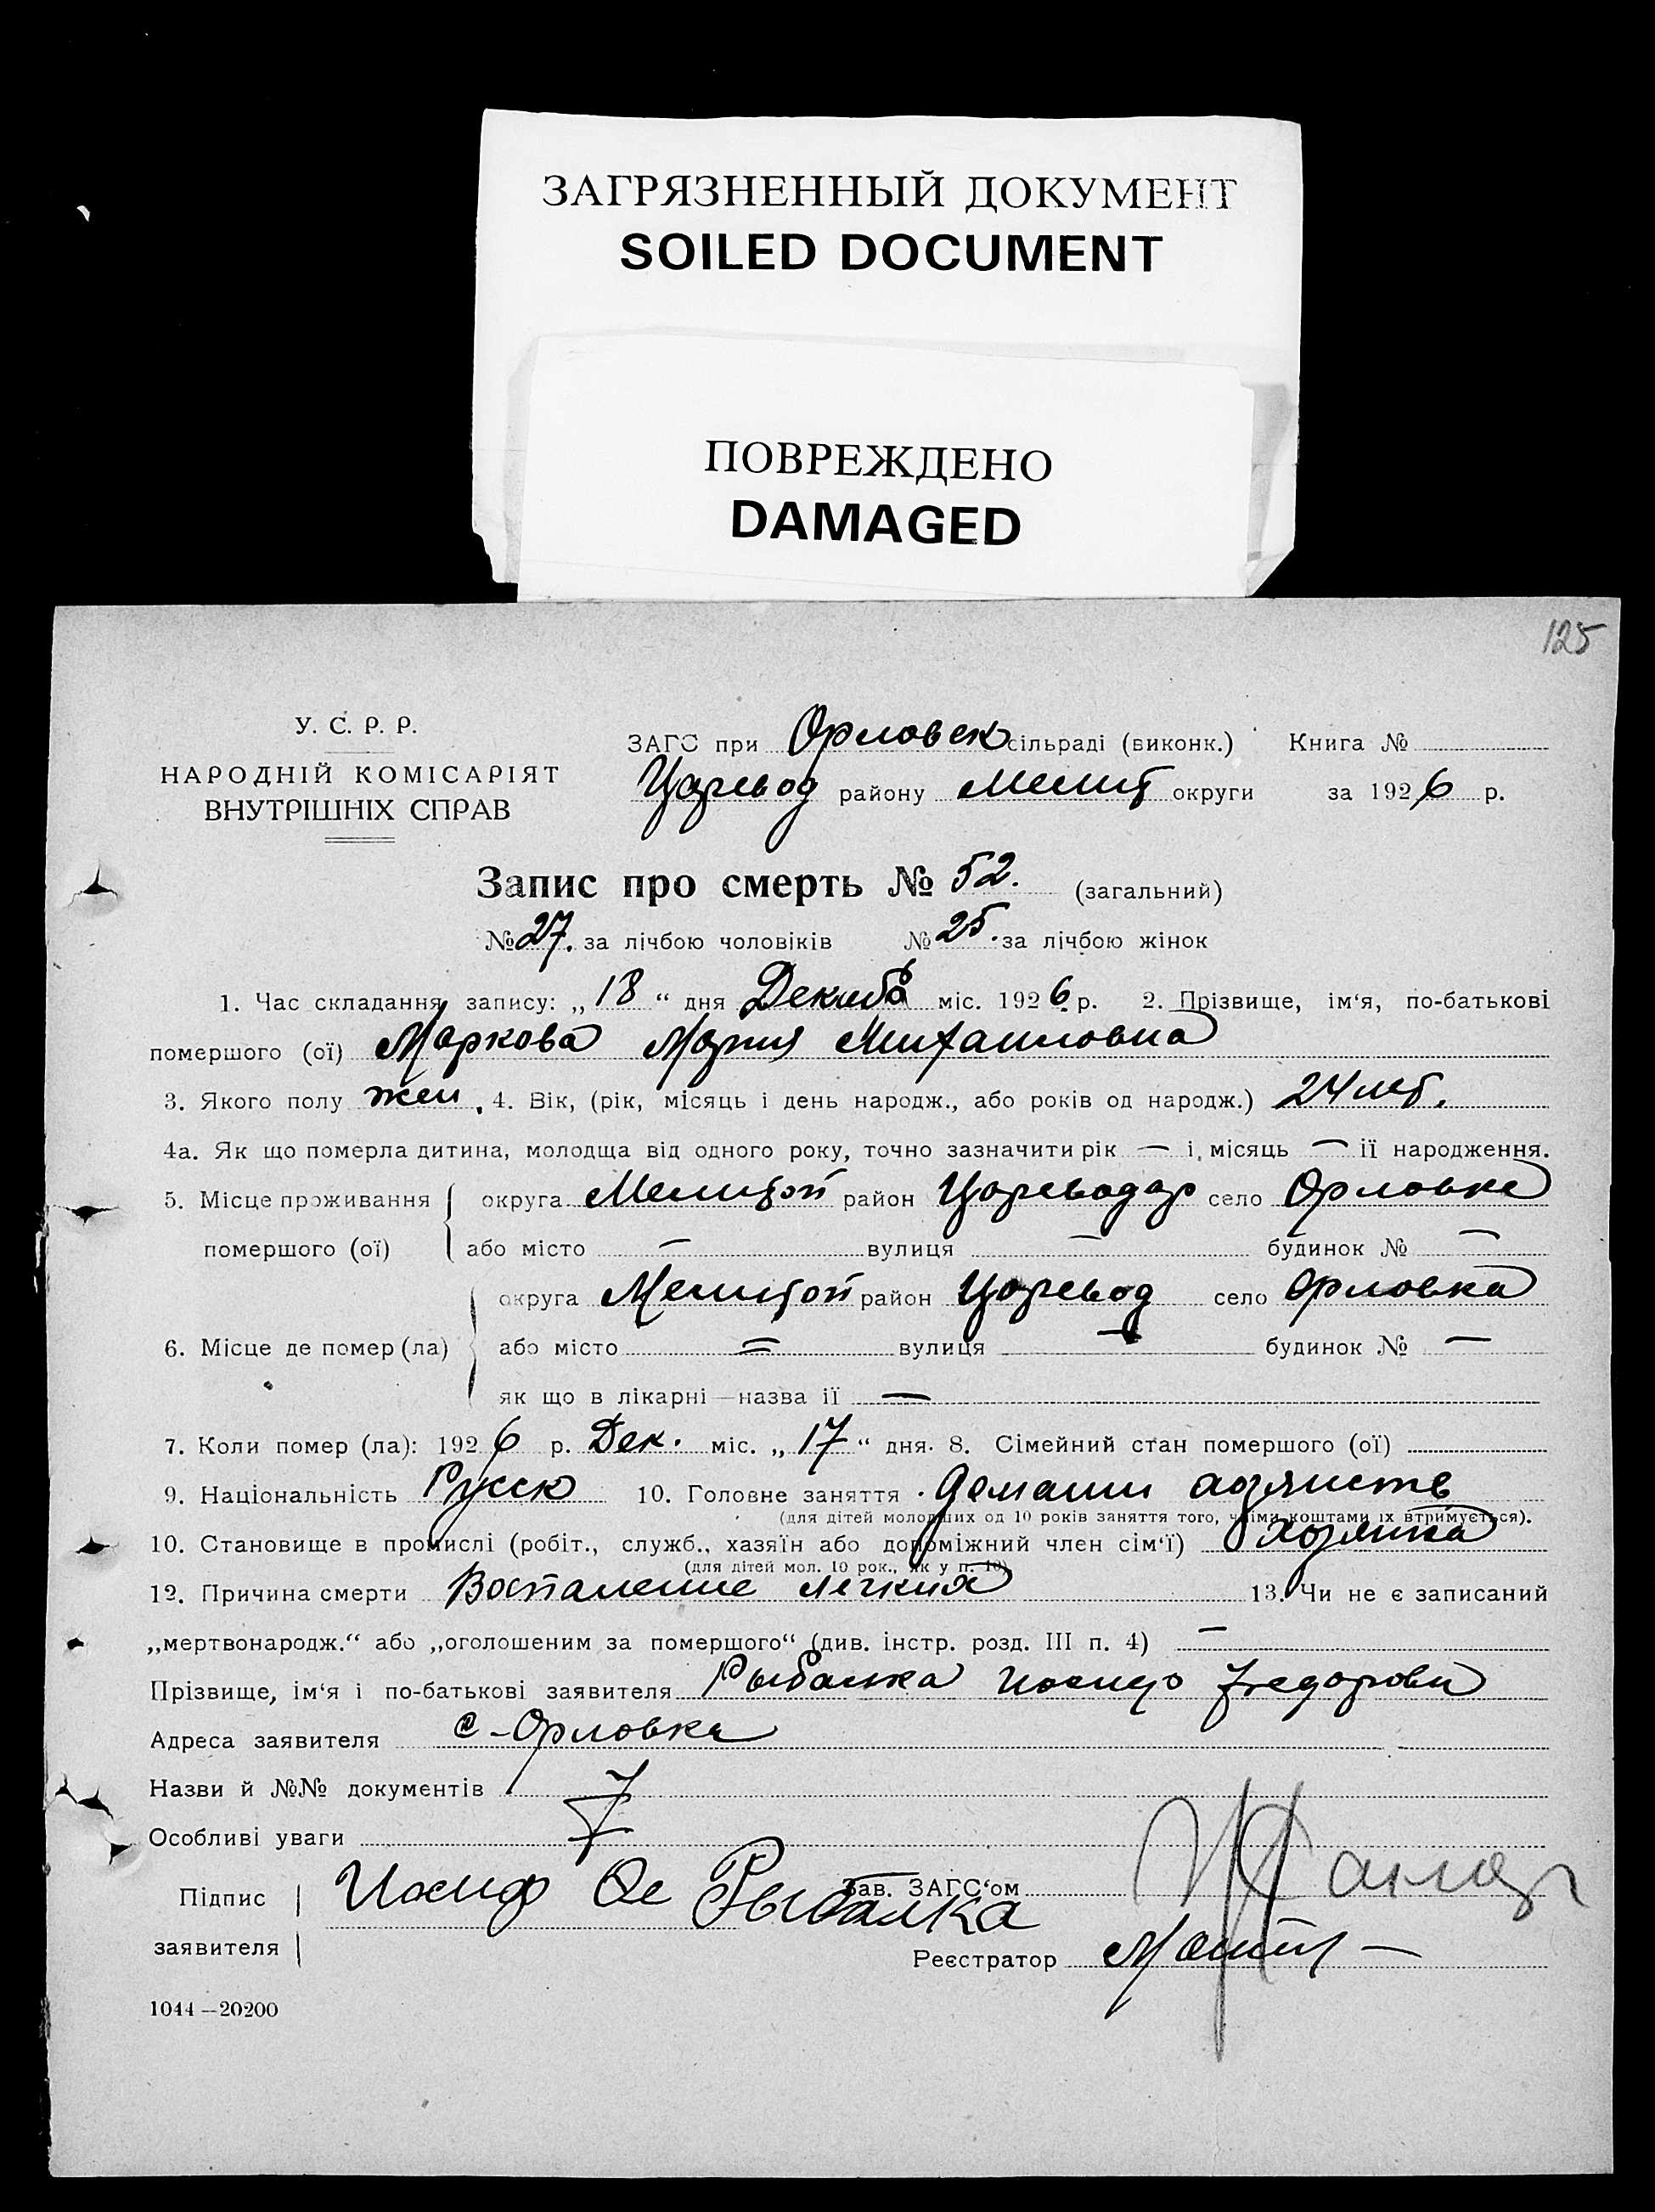 ЗАГРЯЗНЕННЫЙ ДОКУМЕНТ
SOILED DOCUMENT
ПОВРЕЖДЕНО
DAMAGED
125
У. С. Р. Р.
НАРОДНІЙ КОМІСАРІЯТ
ВНУТРІШНІХ СПРАВ
ЗАГС при Орловск сільраді (виконк.) Книга №
Царевод району Мелит округи за 1926 р.
Запис про смерть № 52. (загальний)
№ 27. за лічбою чоловіків № 25. за лічбою жінок
1. Час складання запису: „18“ дня Декаб міс. 1926 р. 2. Прізвище, ім‘я, по-батькові
помершого (ої) Маркова Мария Михаиловна
3. Якого полу жен. 4. Вік, (рік, місяць і день народж., або років од народж.) 24 лет.
4а. Як що померла дитина, молодща від одного року, точно зазначити рік — і, місяць — її народження.
5. Місце проживання округа Мелитоп район Цареводар село Орловке
помершого (ої) або місто — вулиця — будинок № —
округа Мелитоп район Царевод село Орловка
6. Місце де помер (ла) або місто = вулиця — будинок № —
як що в лікарні—назва її —
7. Коли помер (ла): 1926 р. Дек. міс. „17“ дня. 8. Сімейний стан помершого (ої)
9. Національність Русск 10. Головне заняття домашн
(для дітей молодших од 10 років заняття того, чиїми коштами їх втримується).
10. Становище в промислі (робіт., служб., хазяїн або допоміжний член сім‘ї) хозяика
(для дітей мол. 10 рок., як у п. 10)
12. Причина смерти Воспаление легких 13. Чи не є записаний
„мертвонародж.“ або „оголошеним за помершого“ (див. інстр. розд. III п. 4) —
Прізвище, ім‘я і по-батькові заявителя Рыбалка Иосиф Федорови
Адреса заявителя с-Орловка
Назви й №№ документів
Особливі уваги
Підпис Иосиф Рыбалка Зав. ЗАГС‘ом
заявителя
Реєстратор
1044—20200